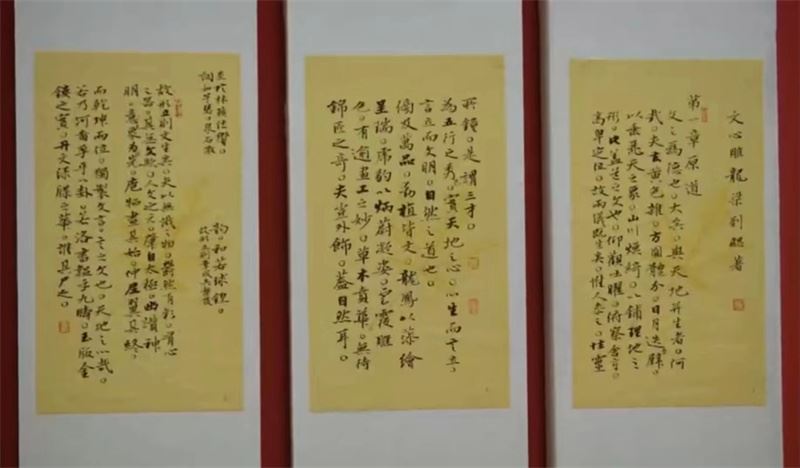 文心雕龍 梁 劉勰著
第一章 原道
文之為德也。大矣。與天地并生者。何
哉。夫玄黃色雜。方圓體分。日月迭璧。
以垂麗天之象。山川煥綺。以鋪理地之
形。此蓋道之文也。仰觀吐曜。俯察含章。
高卑定位。故兩儀既生矣。惟人參之。性靈
所鐘。是謂三才。
為五行之秀。實天地之心。心生而言立。
言立而文明。自然之道也。
傍及萬品。動植皆文。龍鳳以藻繪
呈瑞。虎豹以炳蔚凝姿。雲霞雕
色。有逾畫工之妙。草木賁華。無待
錦匠之奇。夫豈外飾。蓋自然耳。
至於林籟結響。
調如竽瑟。泉石激
韻。和若球鍠。
故形立則章成矣聲發
故形立則文生矣。夫以無識之物。鬱然有彩。有心
之器。其無文歟。人文之元。肇自太極。幽讚神
明。易象為先。庖犧畫其始。仲尼翼其終。
而乾坤兩位。獨製文言。言之文也。天地之心哉。
若乃河圖孕乎八卦。若洛書韞乎九疇。玉版金
鏤之實。丹文綠牒之華。誰其尸之。